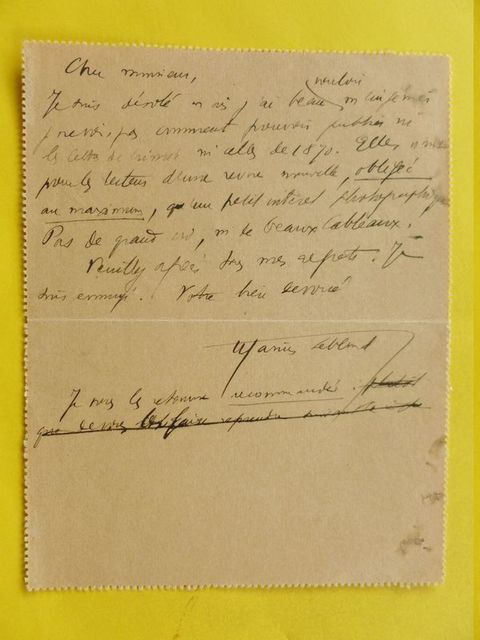 Cher monsieur,
vouloir
Je suis désolé j'ai beau m'ingénier
je ne vois pas comment pouvoir publier ni
les lettres de Crimée ni celles de 1870. Elles n'ont
pour les lecteurs d'une revue nouvelle, obligée
au maximum, qu'un petit intérêt photographique
Pas de grand cri, ni de beaux tableaux.
Veuillez agréer tous mes regrets. Je
suis ennuyé. Votre bien dévoué
Marius Leblond
Je vous les retourne recommandées. plutôt
que de vous les faire reprendre